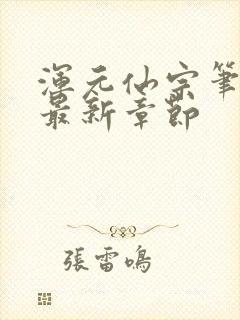 渾元仙宗筆
最新章節
張雷鳴